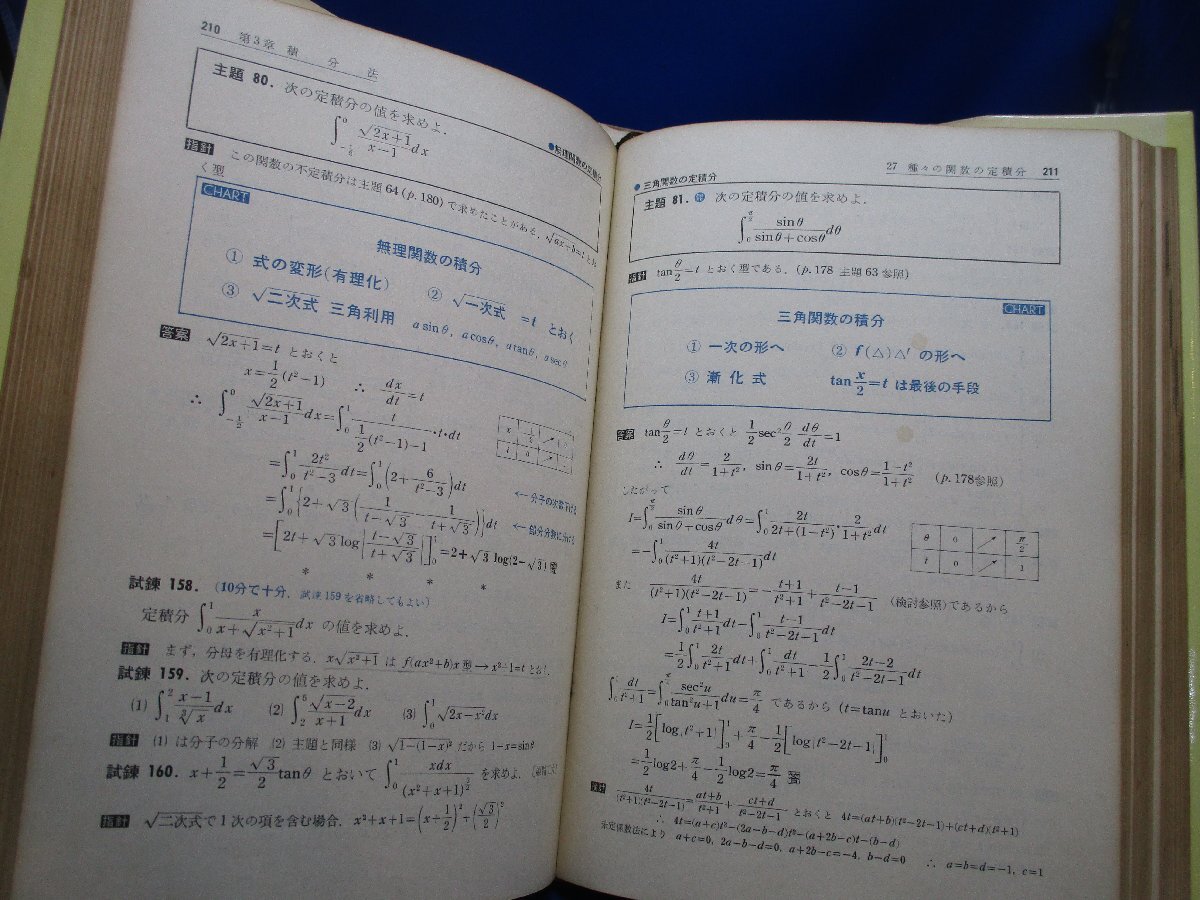 210 第3章 積 分 法
主題 80. 次の定積分の値を求めよ.
∫_{-1/2}^{0} √(2x+1)/(x-1) dx
●無理関数の定積分
指針 この関数の不定積分は主題64(p.180)で求めたことがある. √(ax+b)=tとお
く型
CHART
無理関数の積分
① 式の変形(有理化) ② √一次式 =t とおく
③ √二次式 三角利用 a sinθ, a cosθ, a tanθ, a secθ
答案 √(2x+1)=t とおくと
x=1/2(t²-1) ∴ dx/dt=t
∴ ∫_{-1/2}^{0} √(2x+1)/(x-1) dx=∫_0^1 t/(1/2(t²-1)-1)·t·dt
=∫_0^1 2t²/(t²-3) dt=∫_0^1(2+6/(t²-3))dt ←分子の次数下げる
=∫_0^1{2+√3(1/(t-√3)-1/(t+√3))}dt ←部分分数に分ける
=[2t+√3 log|(t-√3)/(t+√3)|]_0^1=2+√3 log(2-√3) 答
* * * *
試練 158. (10分で十分. 試練159を省略してもよい)
定積分 ∫_0^1 x/(x+√(x²+1)) dx の値を求めよ.
指針 まず, 分母を有理化する. x√(x²+1) は f(ax²+b)x 型→x²+1=t とおく.
試練 159. 次の定積分の値を求めよ.
(1) ∫_1^2 (x-1)/∛x dx (2) ∫_2^5 √(x-2)/(x+1) dx (3) ∫_0^1 √(2x-x²)dx
指針 (1) は分子の分解 (2) 主題と同様 (3) √(1-(1-x)²) だから 1-x=sinθ
試練 160. x+1/2=√3/2 tanθ とおいて ∫_0^1 xdx/(x²+x+1)^{3/2} を求めよ.
指針 √二次式で1次の項を含む場合. x²+x+1=(x+1/2)²+(√3/2)²
27 種々の関数の定積分 211
● 三角関数の定積分
主題 81. 次の定積分の値を求めよ.
∫_0^{π/2} sinθ/(sinθ+cosθ) dθ
指針 tan θ/2=t とおく型である. (p.178 主題63参照)
CHART
三角関数の積分
① 一次の形へ ② f(△)△′ の形へ
③ 漸化式 tan x/2=t は最後の手段
答案 tan θ/2=t とおくと 1/2 sec² θ/2 dθ/dt=1
∴ dθ/dt=2/(1+t²), sinθ=2t/(1+t²), cosθ=(1-t²)/(1+t²) (p.178参照)
したがって
I=∫_0^{π/2} sinθ/(sinθ+cosθ) dθ=∫_0^1 2t/(2t+(1-t²))·2/(1+t²) dt
θ 0 ↗ π/2
t 0 ↗ 1
=-∫_0^1 4t/((t²+1)(t²-2t-1)) dt
また 4t/((t²+1)(t²-2t-1))=-(t+1)/(t²+1)+(t-1)/(t²-2t-1) (検討参照)であるから
I=∫_0^1 (t+1)/(t²+1) dt-∫_0^1 (t-1)/(t²-2t-1) dt
=1/2∫_0^1 2t/(t²+1) dt+∫_0^1 dt/(t²+1)-1/2∫_0^1 (2t-2)/(t²-2t-1) dt
∫_0^1 dt/(t²+1)=∫_0^{π/4} sec²u/(tan²u+1) du=π/4 であるから (t=tanu とおいた)
I=1/2[log(t²+1)]_0^1+π/4-1/2[log|t²-2t-1|]_0^1
=1/2 log2+π/4-1/2 log2=π/4 答
検討 4t/((t²+1)(t²-2t-1))=(at+b)/(t²+1)+(ct+d)/(t²-2t-1) とおくと 4t=(at+b)(t²-2t-1)+(ct+d)(t²+1)
∴ 4t=(a+c)t³-(2a-b-d)t²-(a+2b-c)t-(b-d)
未定係数法により a+c=0, 2a-b-d=0, a+2b-c=-4, b-d=0 ∴ a=b=d=-1, c=1